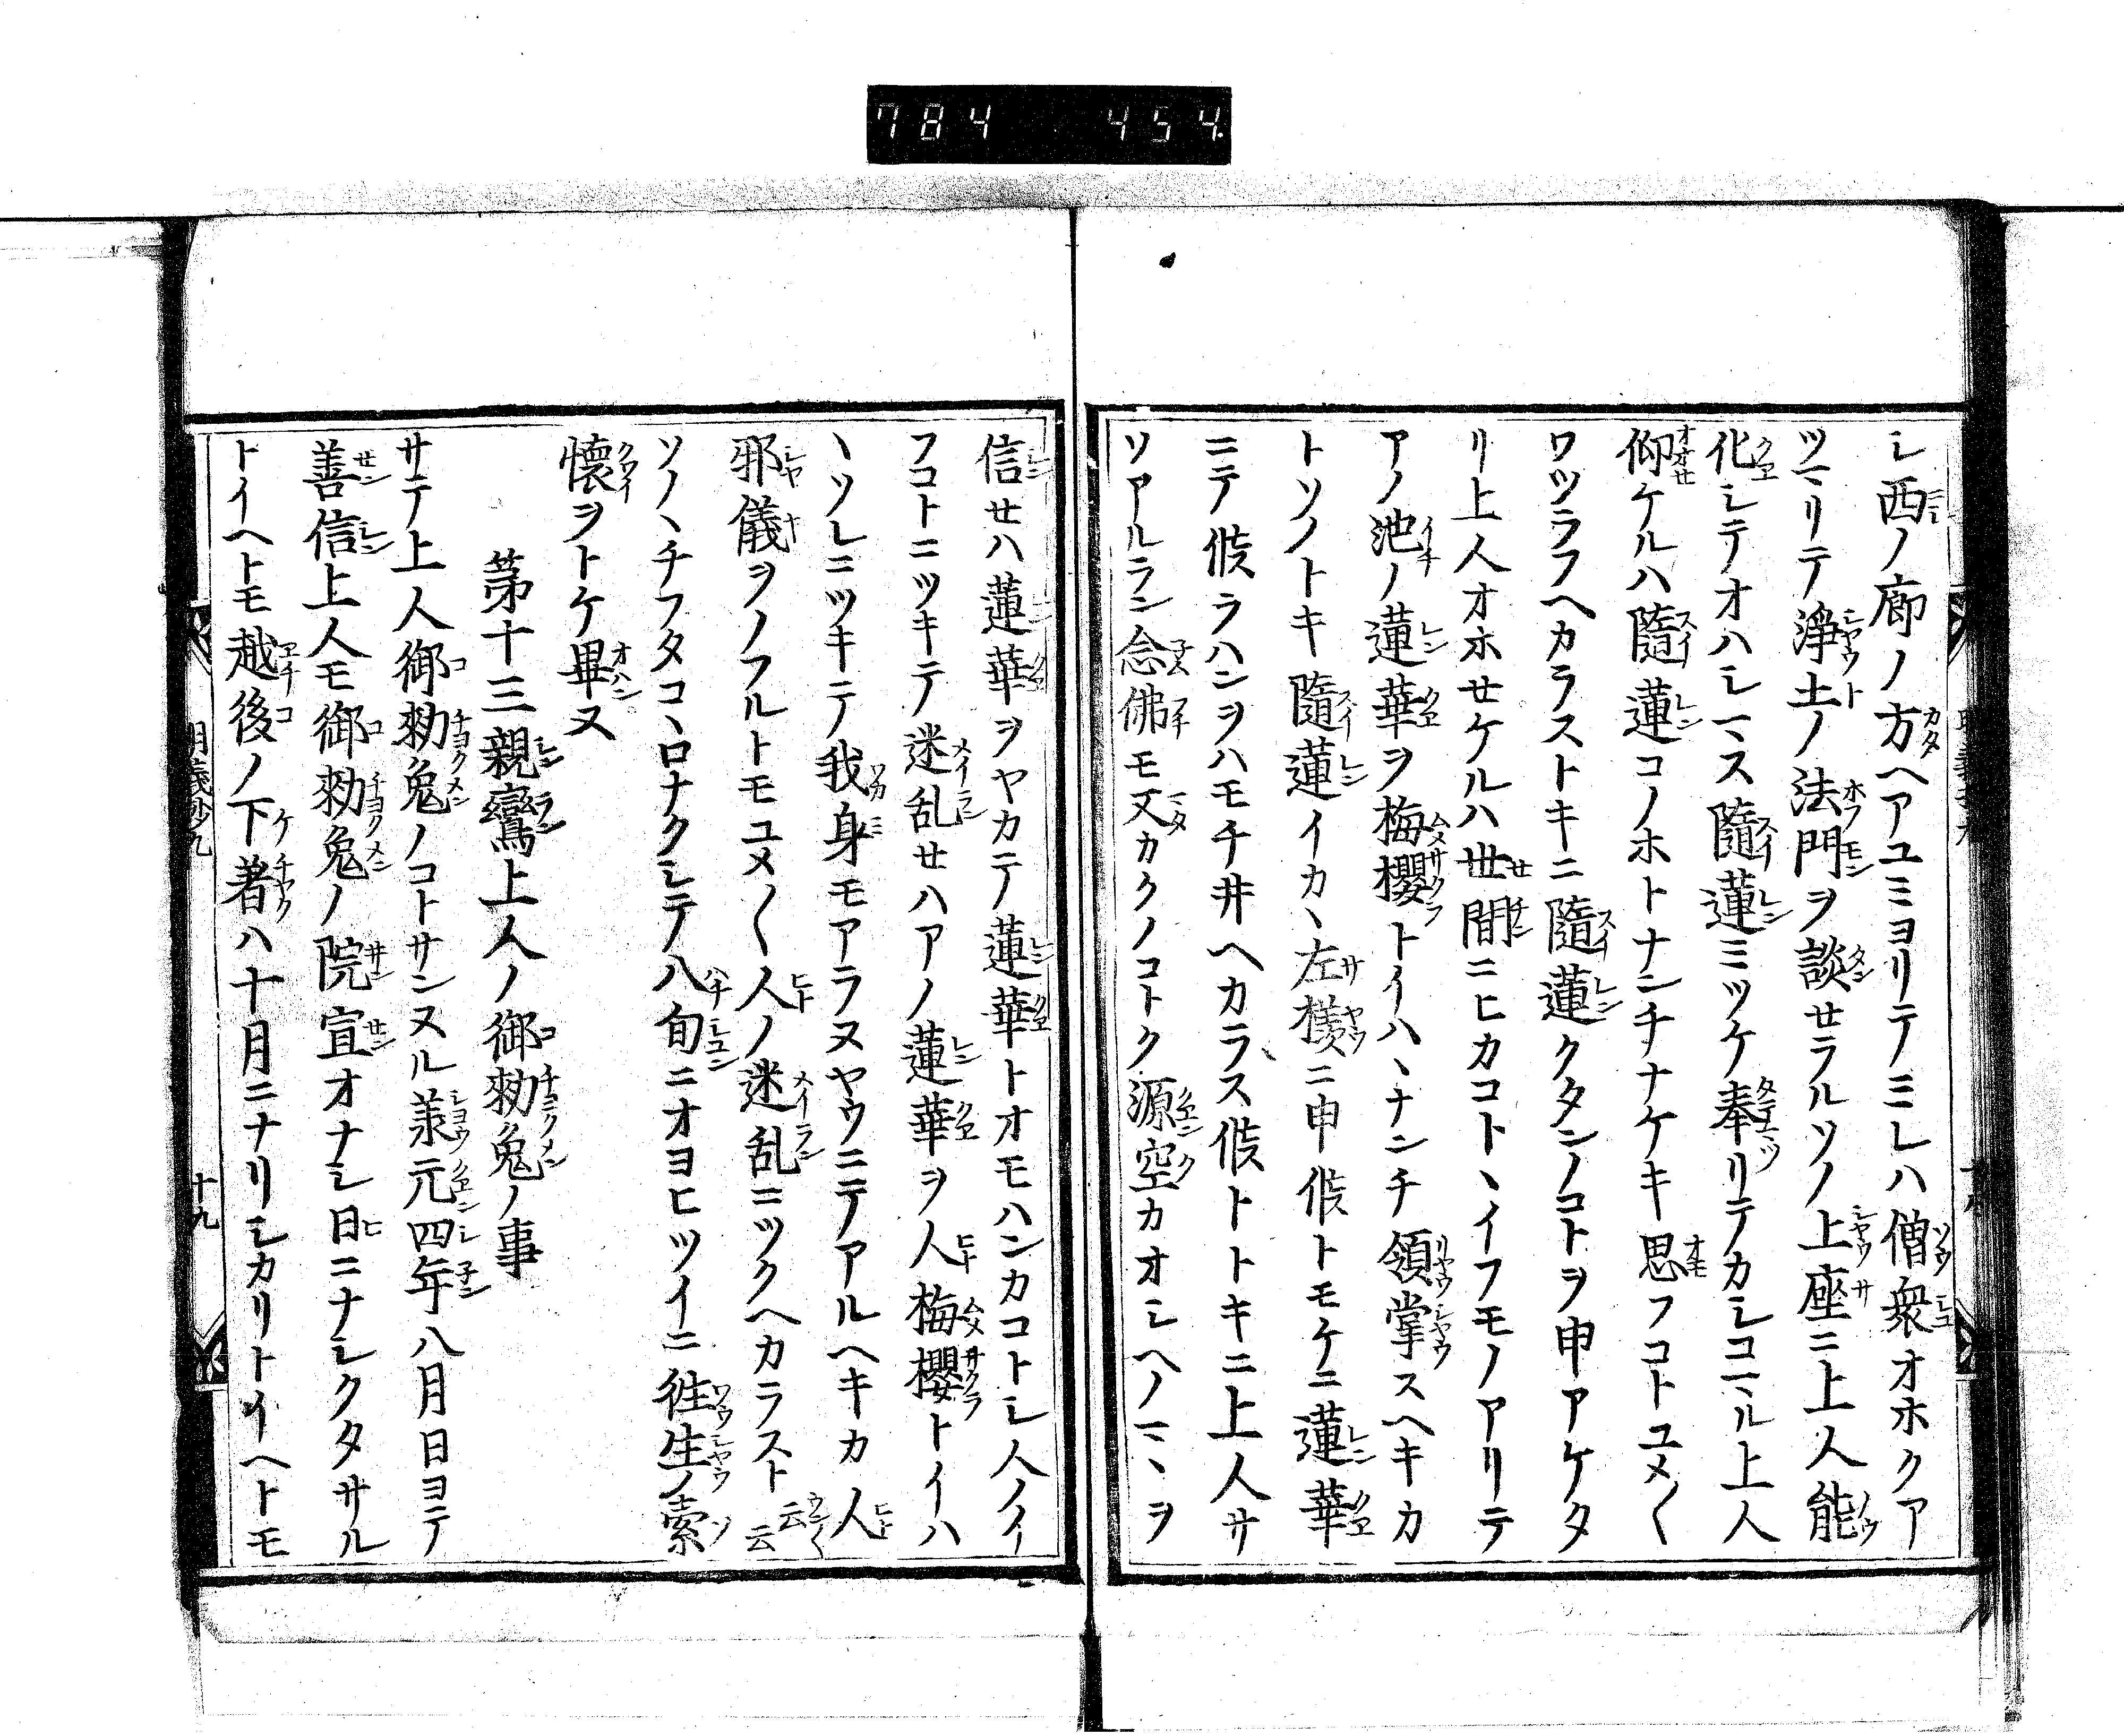 784 454
シ西ノ廊ノ方ヘアユミヨリテノミレハ僧衆オホクア
ツマリテ淨土ノ法門ヲ談セラルソノ上座ニ上人能
化シテオハシマス隨蓮ミツケ奉リテカシコマル上人
仰ケルハ隨蓮コノホトナンチナケキ思フコトユメ〱
ワツラフヘカラストキニ隨蓮クタンノコトヲ申アケタ
リ上人オホセケルハ世間ニヒカコトヽイフモノアリテ
アノ池ノ蓮華ヲ梅櫻トイハヽナンチ領掌スヘキカ
トソノトキ隨蓮イカヽ左樣ニ申候トモケニ蓮華
ニテ候ラハンヲハモチ井ヘカラス候トトキニ上人サ
ソアルラン念佛モ又カクノコトク源空カオシヘノマヽヲ
信セハ蓮華ヲヤカテ蓮華トオモハンカコトシ人ノイ
フコトニツキテ迷乱セハアノ蓮華ヲ人梅櫻トイハ
ヽソレニツキテ我身モアラヌヤウニテアルヘキカ人
邪儀ヲノフルトモユメ〱人ノ迷乱ニツクヘカラスト云云
ソノヽチフタコヽロナクシテ八旬ニオヨヒツイニ徃生ノ索
懷ヲトケ畢ヌ
苐十三親鸞上人ノ御勑免ノ事
サテ上人御勑免ノコトサンヌル羕元四年八月日ヨテ
善信上人モ御勑免ノ院宣オナシ日ニナシクタサル
トイヘトモ越後ノ下著ハ十月ニナリシカリトイヘトモ
明義抄九
十九